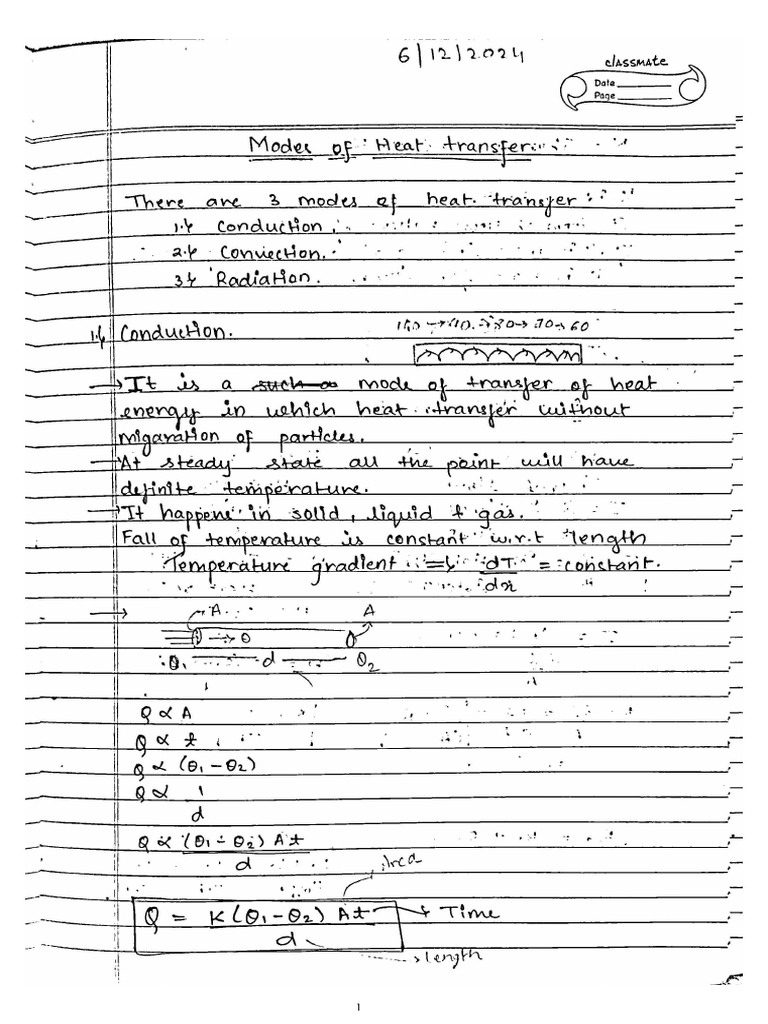 6/12/2024
classmate
Date
Page
Modes of Heat transfer
There are 3 modes of heat transfer
1.↳ Conduction.
2.↳ Convection.
3↳ Radiation.
1.↳ Conduction.
→ 80 → 70 → 60
→ It is a such as mode of transfer of heat
energy in which heat transfer without
migaration of particles.
→ At steady state all the point will have
definite temperature.
→ It happens in solid, liquid & gas.
Fall of temperature is constant w.r.t length
Temperature gradient =↳ dT = constant.
dx
→ A A
→ θ
θ1 d θ2
Q ∝ A
Q ∝ t
Q ∝ (θ1 - θ2)
Q ∝ 1
d
Q ∝ (θ1 - θ2) A t
d
Area
Q = K(θ1 - θ2) A t → Time
d
→ length
1